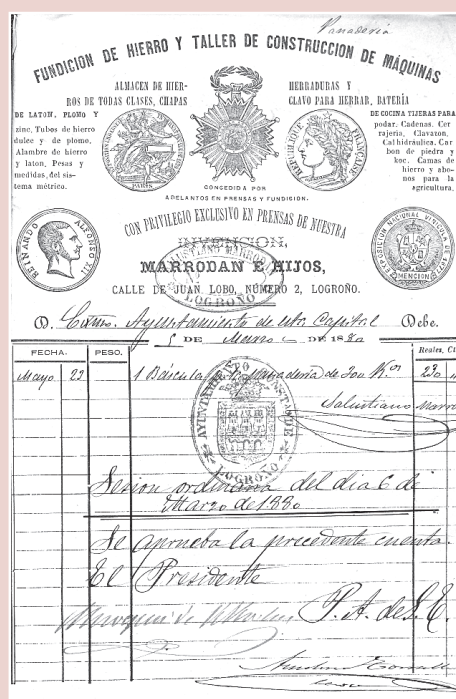 Panaderia
FUNDICION DE HIERRO Y TALLER DE CONSTRUCCION DE MÁQUINAS
ALMACEN DE HIER-
ROS DE TODAS CLASES, CHAPAS
DE LATON, PLOMO Y
zinc, Tubos de hierro
dulce y de plomo,
Alambre de hierro
y laton, Pesas y
medidas, del sis-
tema métrico.
HERRADURAS Y
CLAVO PARA HERRAR, BATERÍA
DE COCINA TIJERAS PARA
podar, Cadenas. Cer
rajeria, Clavazon,
Cal hidráulica, Car
bon de piedra y
kok. Camas de
hierro y abo-
nos para la
agricultura.
PARIS
RÉPUBLIQUE FRANÇAISE
CONCEDIDA POR
ADELANTOS EN PRENSAS Y FUNDICION.
CON PRIVILEGIO EXCLUSIVO EN PRENSAS DE NUESTRA
INVENCION,
REINANDO ALFONSO XII
EXPOSICION NACIONAL VINICOLA DE 1877
MENCION
MARRODAN E HIJOS,
LOGROÑO
CALLE DE JUAN LOBO, NÚMERO 2, LOGROÑO.
D. Excmo. Ayuntamiento de esta Capital Debe.
5 DE Marzo DE 1880
FECHA. PESO. Reales. Ct
Mayo 23 1 Báscula panaderia de 300 K.os 230
Salustiano Marro
AYUNTAMIENTO CONSTAL DE LOGROÑO
Sesion ordinaria del dia 6 de
Marzo de 1880
Se aprueba la precedente cuenta.
El Presidente
P. A. de S. E.